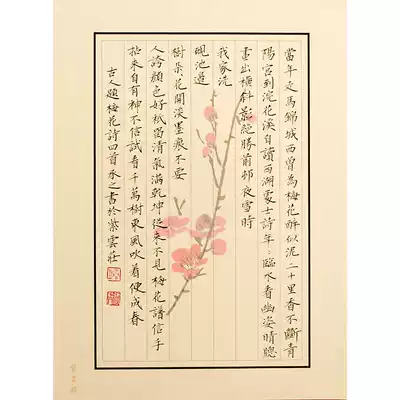 當年走馬錦城西曾為梅花醉似泥二十里香不斷青
陽宮到浣花溪自讀西湖處士詩年〻臨水看幽姿晴牕
畫出橫斜影絕勝前邨夜雪時
我家洗
硯池邊
樹朵花開淡墨痕不要
人誇顏色好祇留清氣滿乾坤從來不見梅花譜信手
拈來自有神不信試看千萬樹東風吹着便成春
古人題梅花詩四首 承之書於紫雲莊